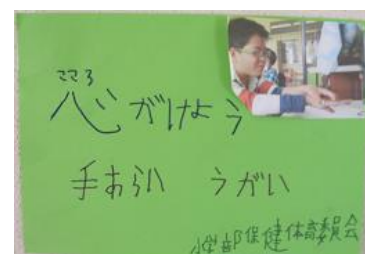 こころ
心がけよう
手あらい　うがい
小学部保健体育委員会